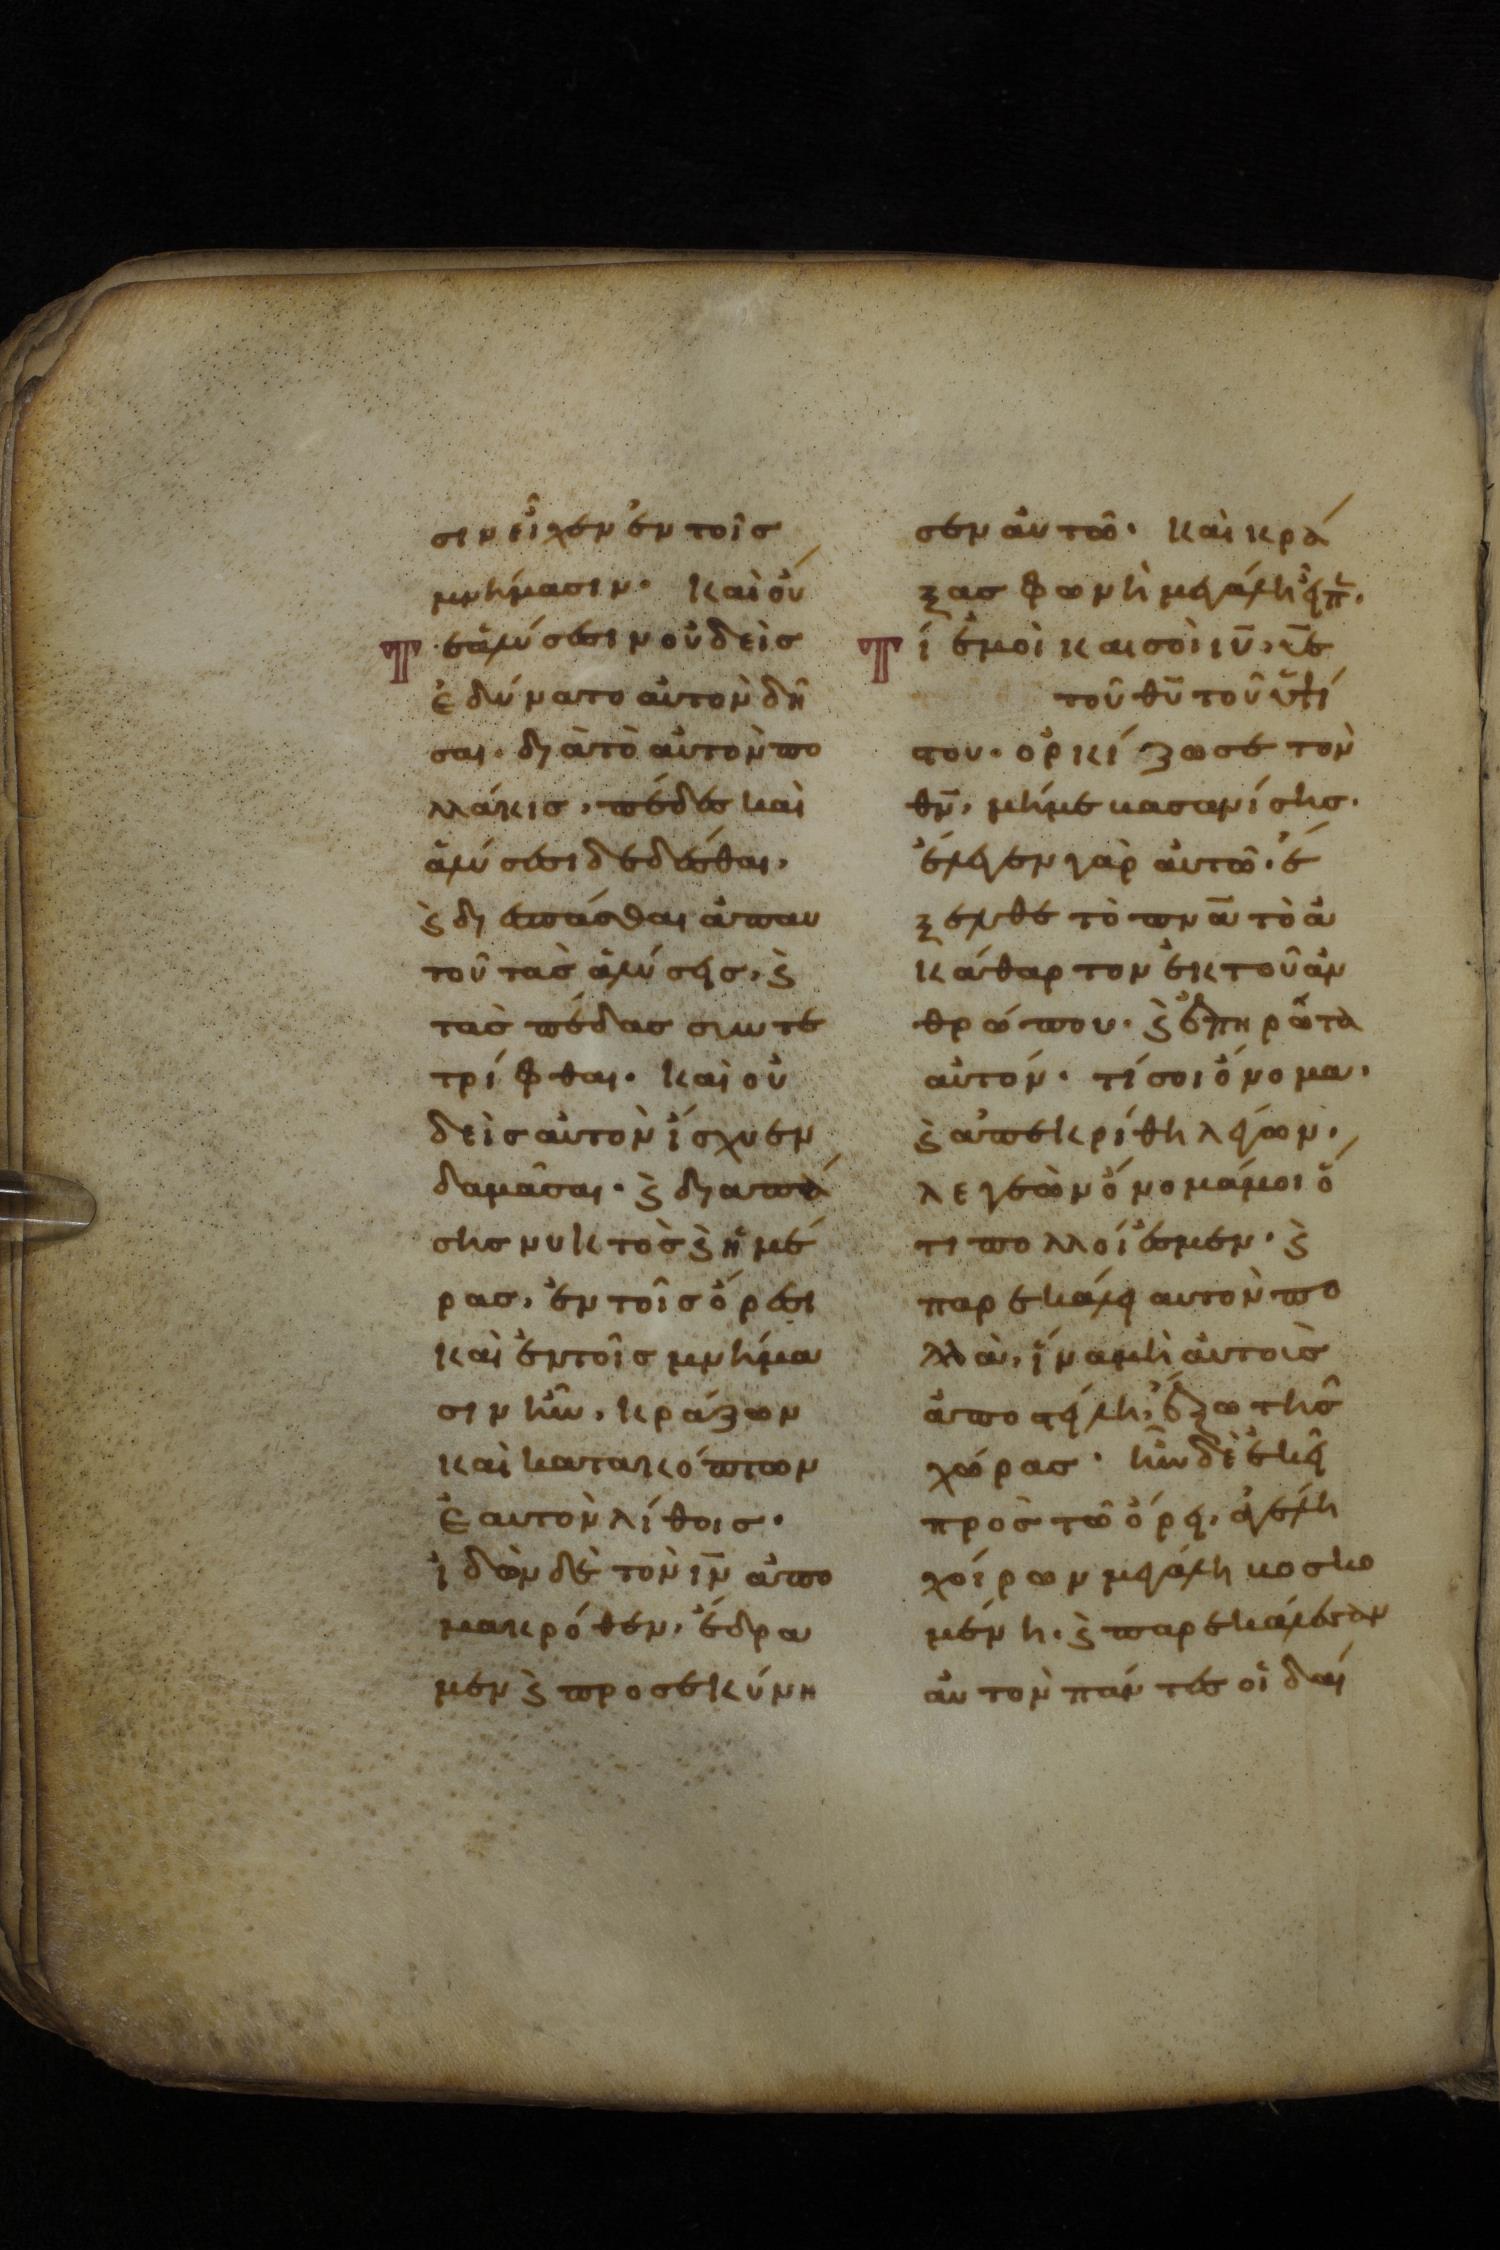 σιν εἶχεν ἐν τοῖσ
μνήμασιν· καὶ οὔ
τε ἁλύσεσιν οὐδεὶσ
ἐδύνατο αὐτὸν δῆ
σαι· διὰ τὸ αὐτὸν πο
λλάκισ, πέδεσ καὶ
ἁλύσεσι δεδέσθαι,
ϛ διεσπάσθαι ἀπ αυ
τοῦ τασ ἁλύσεισ, ϛ
τασ πέδασ συντε
τρίφθαι· καὶ οὐ
δεὶσ αὐτὸν ἴσχυεν
δαμᾶσαι· ϛ διαπα
σησ νυκτὸσ ϛ ἡμέ
ρασ, ἐν τοῖσ ὄρεσι
καὶ ἐν τοῖσ μνήμα
σιν ἦν, κράζων
καὶ κατακόπτων
ἑαυτὸν λίθοισ·
ἰδὼν δὲ τὸν ιν̅ ἀπο
μακρόθεν, ἔδρα
μεν ϛ προσεκύνη
σεν αὐτῶ· καὶ κρά
ξασ φωνὴ μεγάλη εἶπ·
τί ἐμοὶ και σοὶ ιυ̅, υ̅ε
τοῦ θυ̅ τοῦ ὑψί
στου· ὁρκίζω σε τὸν
θν̅, μή με βασανίσησ·
ἔλεγεν γὰρ αὐτῶ· ἔ
ξελθε τὸ πνα̅ τὸ ἀ
κάθαρτον ἐκ τοῦ ἀν
θρώπου· ϛ ἐπηρώτα
αὐτόν· τί σοι ὄνομα·
ϛ ἀπεκρίθη λέγων·
λεγεὼν ὄνομά μοι ὅ
τι πολλοί ἐσμεν· ϛ
παρεκάλει αυτὸν πο
λλὰ, ἵνα μὴ αὐτοὺσ
ἀποστείλη, ἔξω τῆσ
χώρασ· ἦν δὲ ἐκεῖ
πρὸσ τῶ ὄρει, ἀγέλη
χοίρων μεγάλη βοσκο
μένη· ϛ παρεκάλεσαν
αὐτὸν πάντεσ οἱ δαί